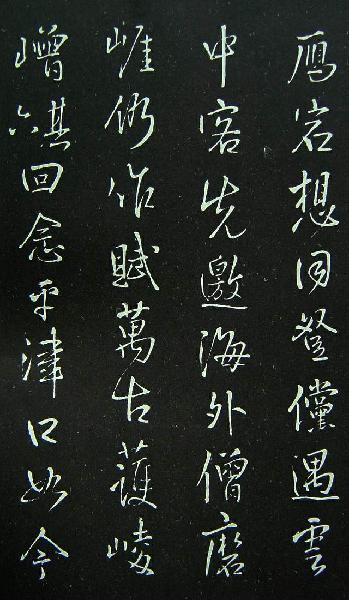 鴈宕想同登儻遇雲
中客先邀海外僧磨
崕仍作賦萬古護崚
嶒其六回念平津口如今